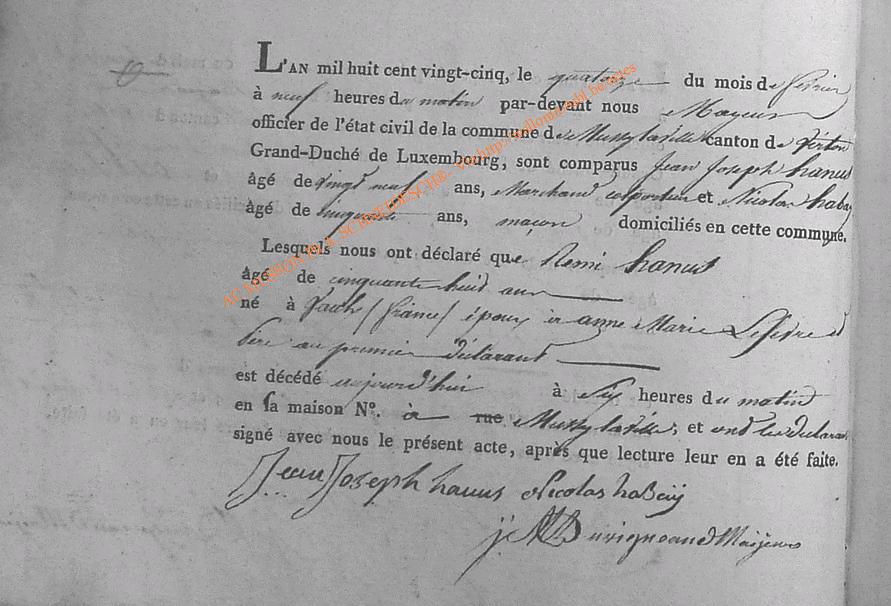 L'AN mil huit cent vingt-cinq, le quatorze du mois de fevrier
à neuf heures du matin par-devant nous Mayeur
officier de l'état civil de la commune de Mussy laville canton de Virton
Grand-Duché de Luxembourg, sont comparus Jean Joseph hanus
âgé de vingt neuf ans, Marchand colporteur et Nicolas habay
âgé de cinquante ans, maçon domiciliés en cette commune.
Lesquels nous ont déclaré que Remi hanus
âgé de cinquante huit ans
né à (france) époux à anne Marie Lefevre et
Pere au premier déclarant
est décédé aujourd'hui à Six heures du matin
en sa maison N°. à rue Mussy laville, et ont les déclarans
signé avec nous le présent acte, après que lecture leur en a été faite.
Jean Joseph hanus Nicolas habaÿ
Maÿeur